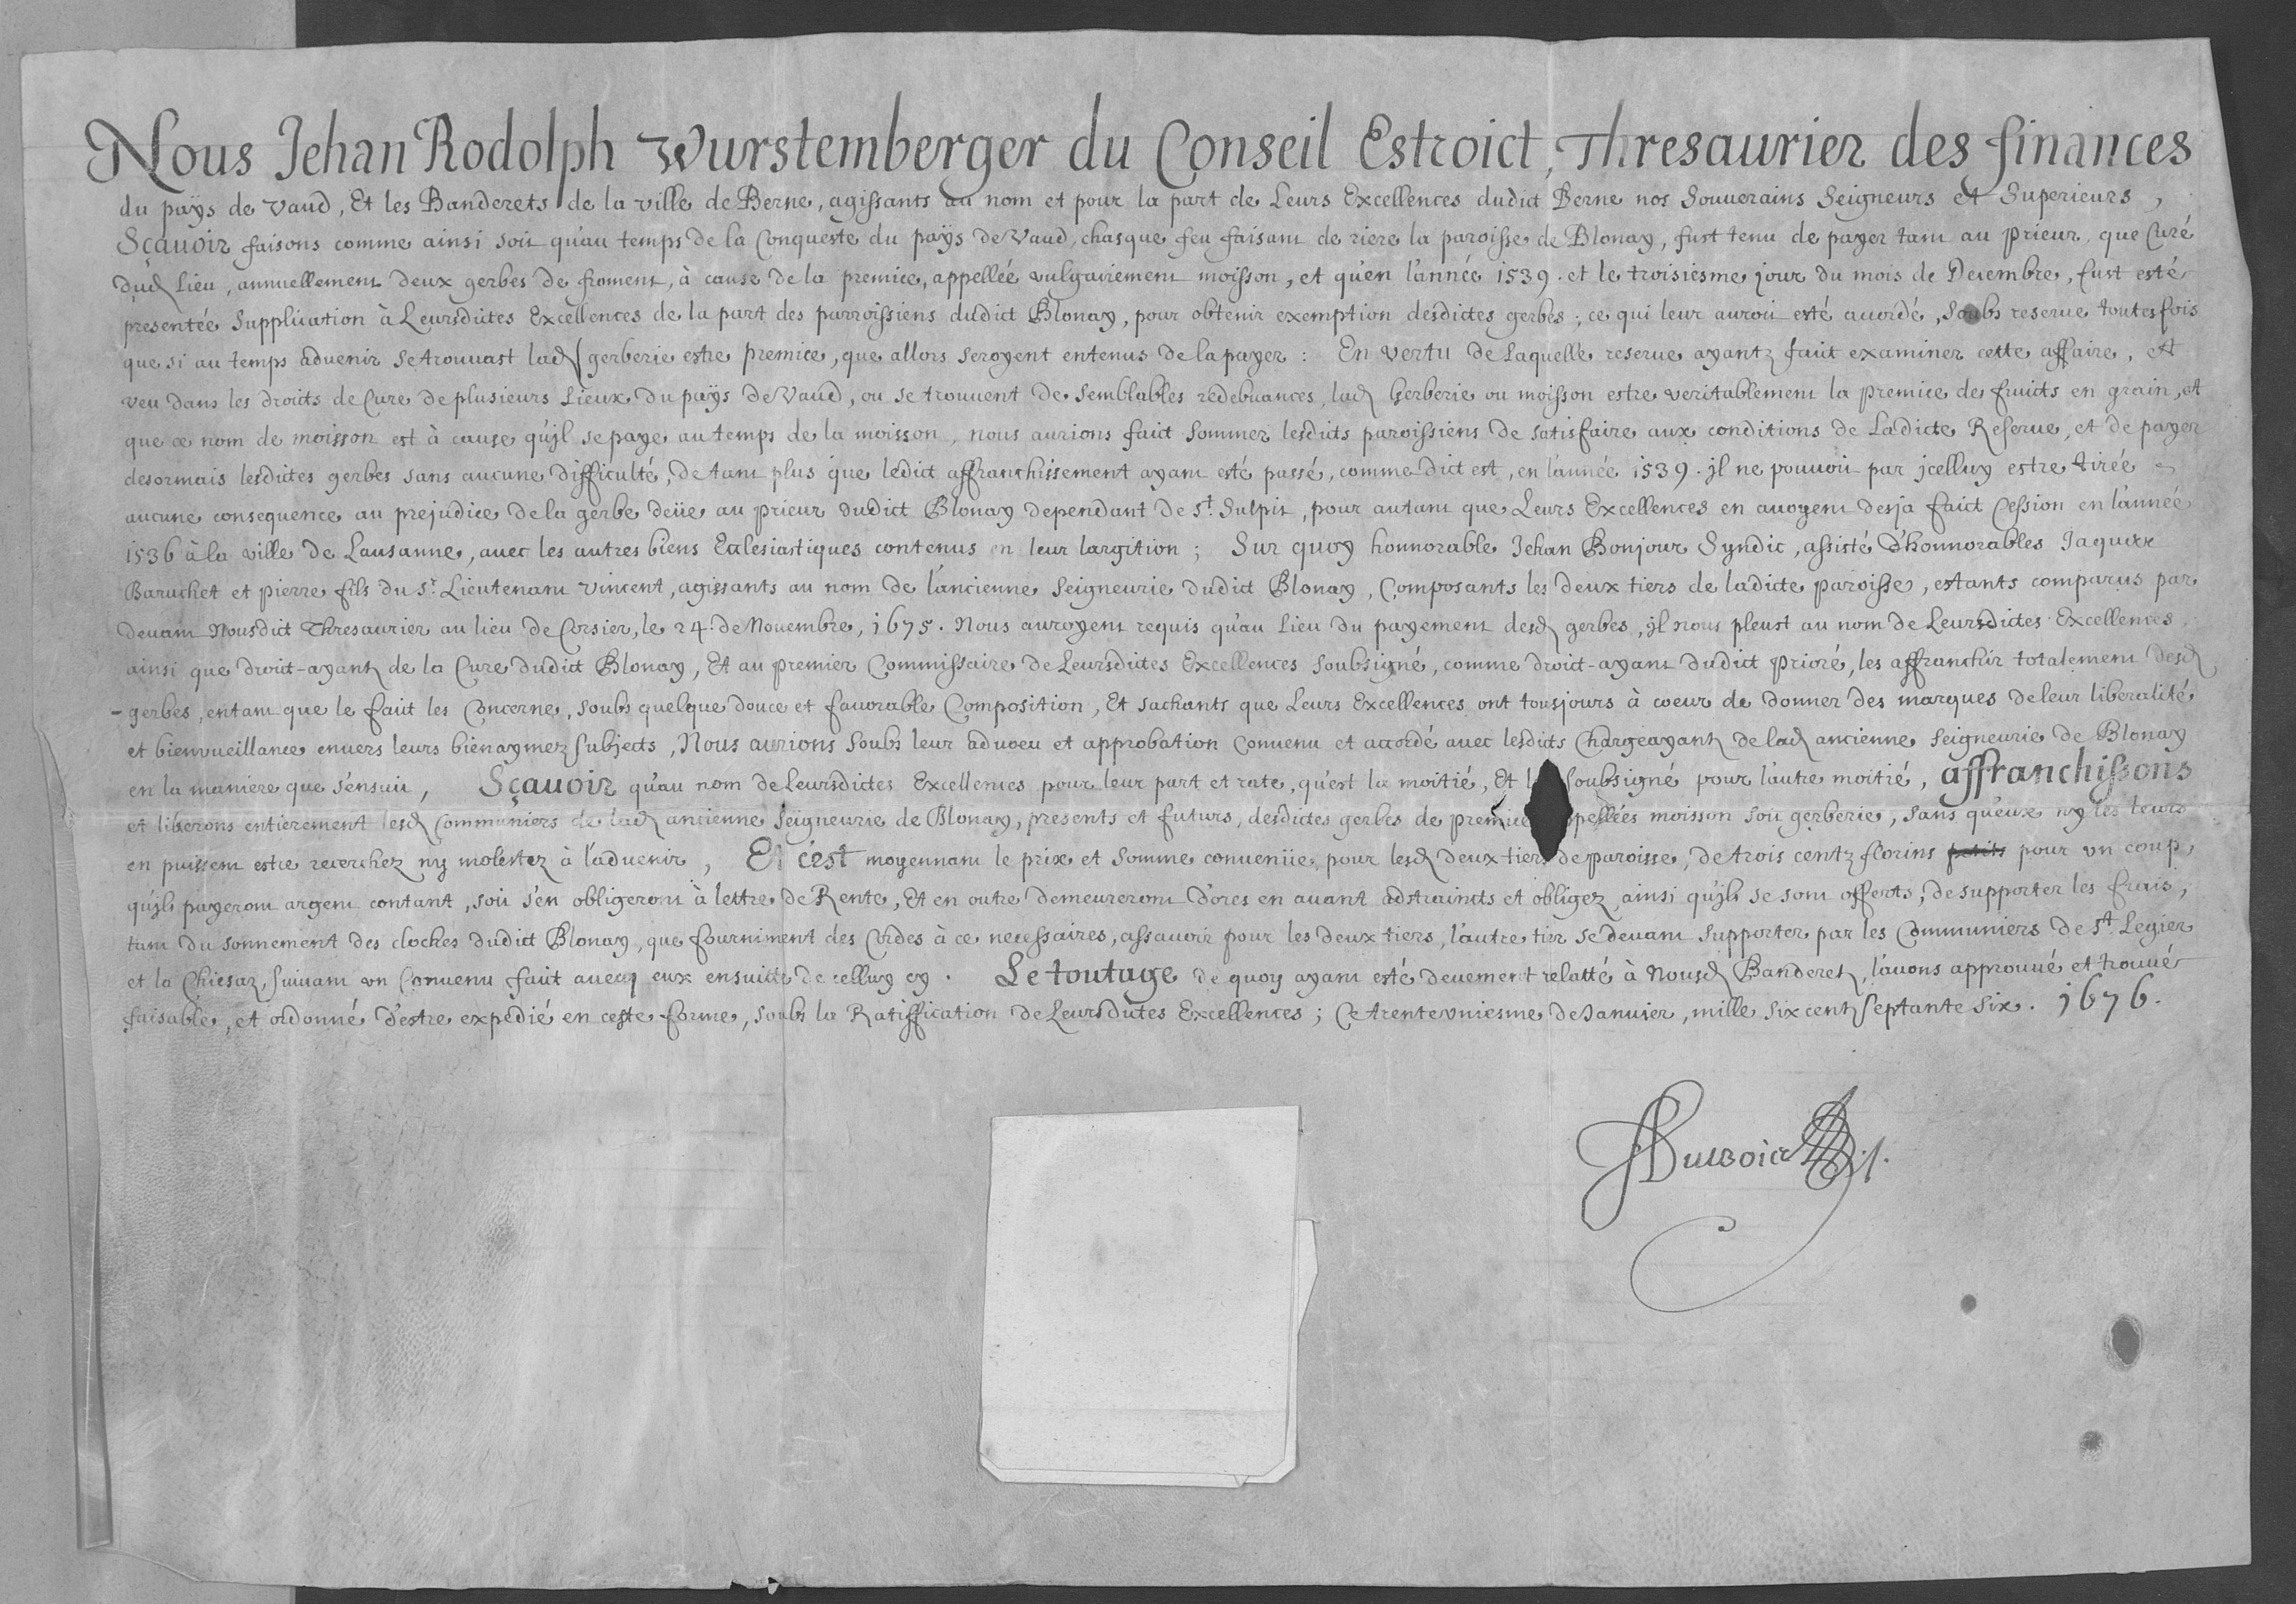 Nous Jehan Rodolph Wurstemberger du Conseil Estroict, Thresaurier des finances
du païs de Vaud, Et les Banderets de la ville de Berne, agissants au nom et pour la part de Leurs Excellences dudict Berne nos Souverains Seigneurs et Superieurs,
Sçavoir faisons comme ainsi soit qu'au temps de la Conqueste du païs de Vaud, chasque feu faisant de riere la paroisse de Blonay, fust tenu de payer tant au Prieur, que Curé
dud. Lieu, annuellement deux gerbes de froment, à cause de la premice, appellée vulgairement moisson, et qu'en l'année 1539. et le troisiesme jour du mois de Decembre, fust esté
presentée Supplication à Leursdictes Excellences de la part des parroissiens dudict Blonay, pour obtenir exemption desdictes gerbes; ce qui leur auroit esté accordé, soubs reserve toutesfois
que si au temps advenir se trouvast lad. gerberie estre premice, que allors seroyent entenus de la payer: En vertu de Laquelle reserve ayantz faict examiner cette affaire, et
veu dans les droits de Cure de plusieurs Lieux du païs de Vaud, ou se trouvent de Semblables redebvances, lad. Gerberie ou moisson estre veritablement la premice de fruicts en grain, et
que ce nom de moisson est à cause qu'jl se paye au temps de la moisson, nous aurions faict sommer lesdicts paroissiens de satisfaire aux conditions de Ladicte Reserve, et de payer
desormais lesdictes gerbes sans aucune difficulté, de tant plus que ledict affranchissement ayant esté passé, comme dict est, en l'année 1539. jl ne pouvoit par jcelluy estre tirée
aucune consequence au prejudice de la gerbe deüe au prieur dudict Blonay dependant de St. Sulpit, pour autant que Leurs Excellences en avoyent desja faict Cession en l'année
1536 à la ville de Lausanne, avec les autres biens Ecclesiastiques contenus en leur largition; Sur quoy honnorable Jehan Bonjour Syndic, assisté d'honnorables Jaques
Baruchet et Pierre fils du Sr. Lieutenant Vincent, agissants au nom de l'ancienne Seigneurie dudict Blonay, Composants les deux tiers de ladicte paroisse, estants comparus par
devant Nousdict Thresaurier au lieu de Corsier, le 24. de Novembre, 1675. Nous auroyent requis qu'au Lieu du payement desd. gerbes, jl nous pleust au nom de Leursdictes Excellences,
ainsi que droit-ayantz de la Cure dudict Blonay, Et au premier Commissaire de Leursdictes Excellences soubsigné, comme droit-ayant dudict Prioré, les affranchir totalement desd.
gerbes, entant que le faict les Concerne, soubs quelque douce et favorable Composition, Et sachants que Leurs Excellences ont tousjours à coeur de donner des marques de leur liberalité
et bienvueillance envers leurs bienaymez subjects, Nous aurions soubs leur adveu et approbation Convenu et accordé avec lesdicts Chargeayantz de lad. ancienne Seigneurie de Blonay
en la maniere que s'ensuit, Sçavoir qu'au nom de Leursdictes Excellences pour leur part et rate, qu'est la moitié, Et soubsigné pour l'autre moitié, affranchissons
et liberons entierement lesd. Communiers de lad. ancienne Seigneurie de Blonay, presents et futurs, desdictes gerbes de premice pellées moisson soit gerberie, sans qu'eux ny les leurs
en puissent estre recerchez ny molestez à l'advenir, Et c'est moyennant le prix et somme convenüe pour lesd. deux tiers de paroisse, de trois centz florins petits pour un coup,
qu'jls payeront argent contant, soit s'en obligeront à lettre de Rente, Et en outre demeureront d'ores en avant adstraincts et obligez, ainsi qu'jls se sont offerts, de supporter les frais,
tant du sonnement des cloches dudict Blonay, que fourniment des Cordes à ce necessaires, assavoir pour les deux tiers, l'autre tier se devant supporter par les Communiers de St. Legier
et la Chiesaz, suivant un Convenu faict avecq eux ensuitte de celluy cy. Le toutage de quoy ayant esté deuement relatté à Nousd. Banderetz, l'avons approuvé et trouvé
faisable, et ordonné d'estre expedié en ceste forme, soubs la Ratiffication de Leursdictes Excellences; Ce trenteuniesme de Janvier, mille six centz septante six. 1676.